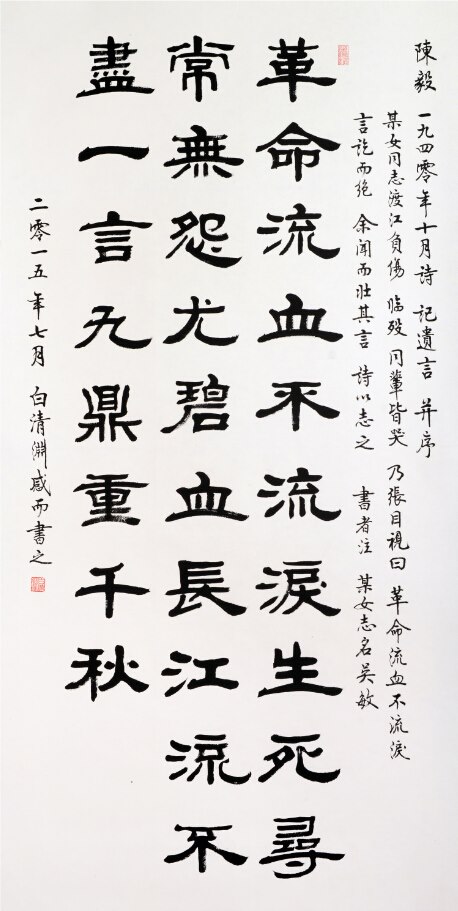 陳毅 一九四零年十月詩 記遺言 并序
某女同志渡江負傷 臨殁 同輩皆哭 乃張目視曰 革命流血不流淚
言訖而絶 余聞而壯其言 詩以志之 書者注 某女志名吴敏
革命流血不流淚生死尋
常無怨尤碧血長江流不
盡一言九鼎重千秋
二零一五年七月 白清淵感而書之